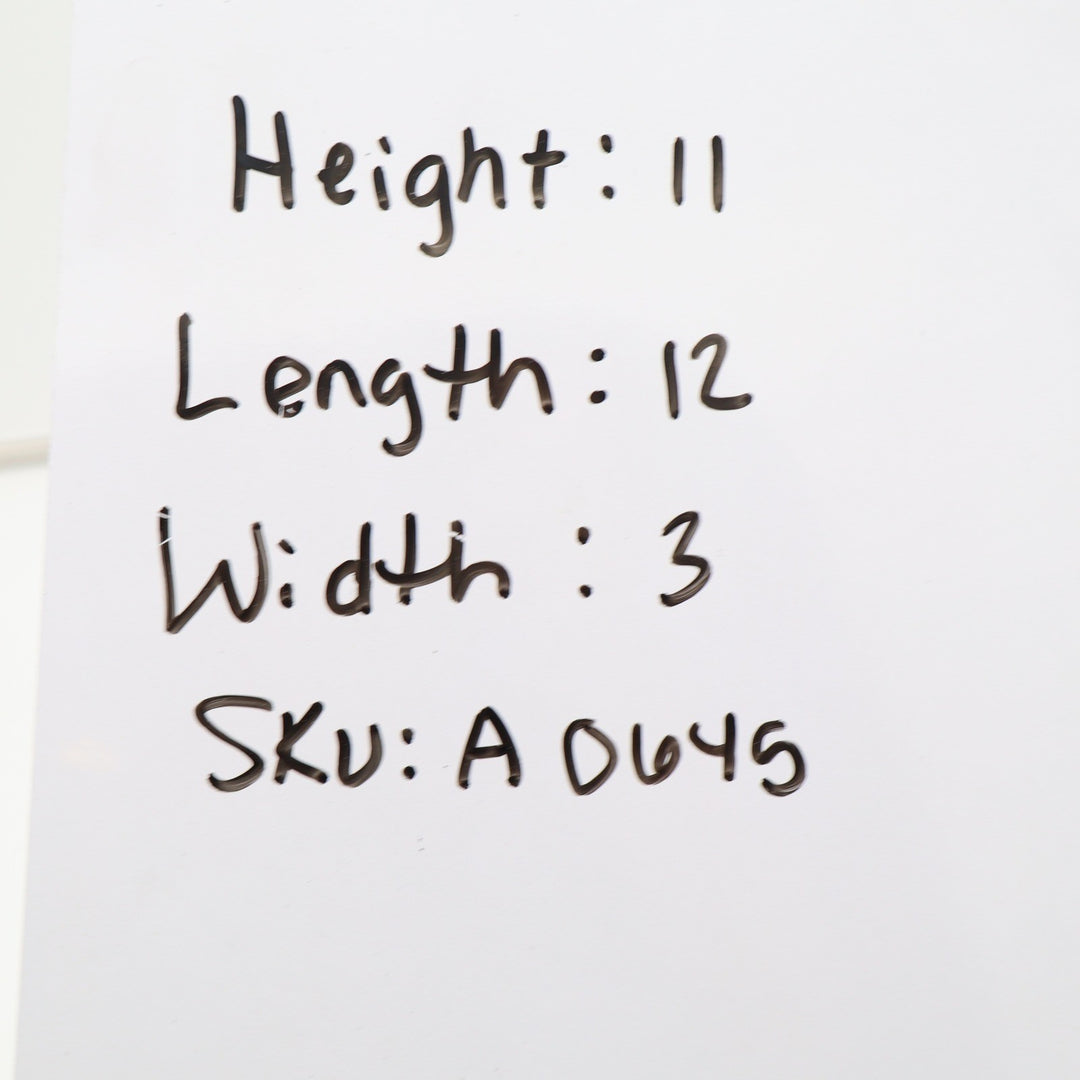 Height: 11
Length: 12
Width: 3
SKU: A 0645